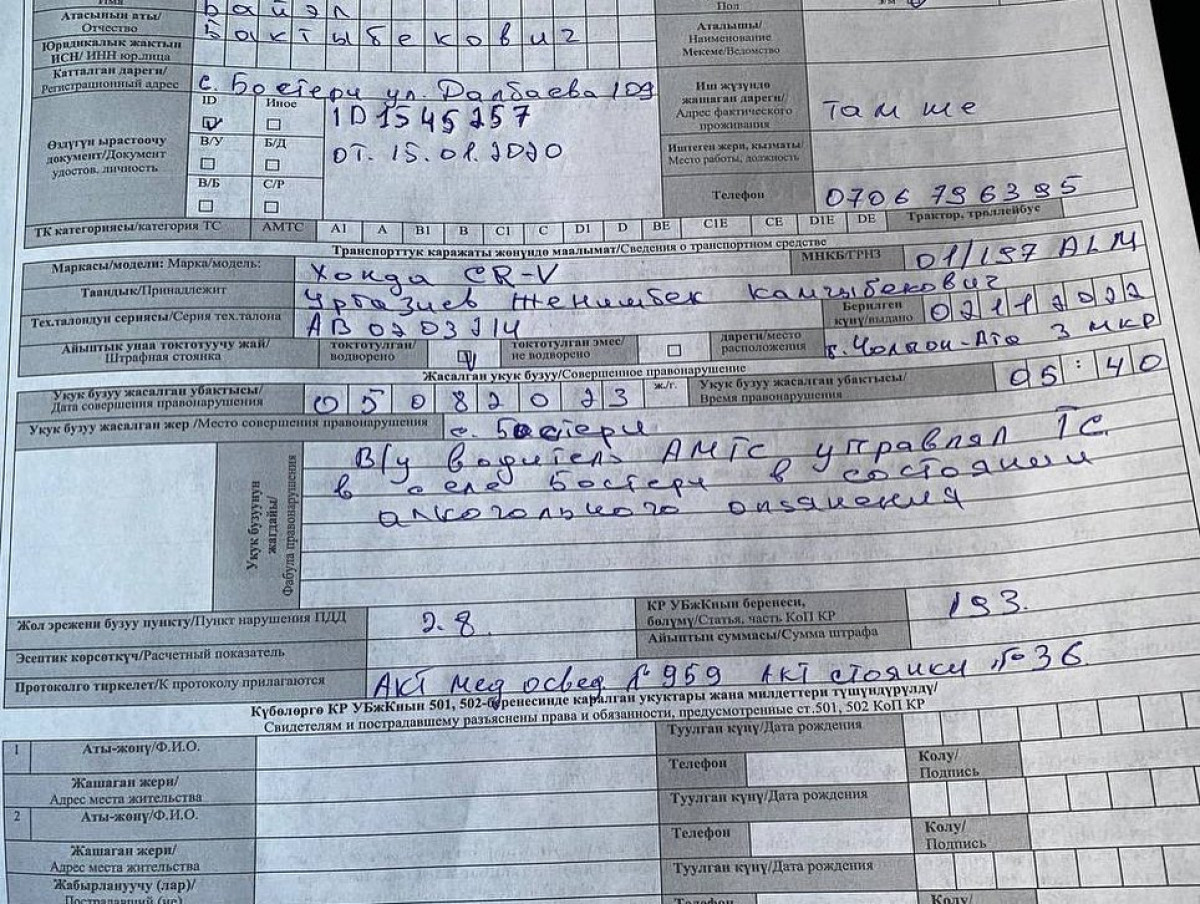 Имя
Байэл
Пол
Атасынын аты/
Отчество
Бактыбекович
Аталышы/
Наименование
Мекеме/Ведомство
Юридикалык жактын
ИСН/ ИНН юр.лица
Катталган дареги/
Регистрационный адрес
с. Бостери ул. Далбаева 109
Иш жүзүндө
жашаган дареги/
Адрес фактического
проживания
там же
Өздүгүн ырастоочу
документ/Документ
удостов. личность
ID
Иное
В/У
Б/Д
В/Б
С/Р
ID1545257
от. 15.01.2020
Иштеген жери, кызматы/
Место работы, должность
Телефон
0706 796395
ТК категориясы/категория ТС
АМТС
A1 A B1 B C1 C D1 D BE C1E CE D1E DE
Трактор, троллейбус
Транспорттук каражаты жөнүндө маалымат/Сведения о транспортном средстве
Маркасы/модели: Марка/модель:
Хонда CR-V
МНКБ/ГРНЗ
01/197 ALM
Таандык/Принадлежит
Женишбек Камчыбекович
Тех.талондун сериясы/Серия тех.талона
АВ 0203214
Берилген
күнү/выдано
02112022
Айыптык унаа токтотуучу жай/
Штрафная стоянка
токтотулган/
водворено
токтотулган эмес/
не водворено
дареги/место
расположения
г. Чолпон-Ата 3 мкр
Жасалган укук бузуу/Совершенное правонарушение
Укук бузуу жасалган убактысы/
Дата совершения правонарушения
05082023
ж./г.
Укук бузуу жасалган убактысы/
Время правонарушения
05:40
Укук бузуу жасалган жер /Место совершения правонарушения
с. Бостери
Укук бузуунун
жагдайы/
Фабула правонарушения
В/у водитель АМТС управлял ТС
в селе Бостери в состоянии
алкогольного опьянения
Жол эрежени бузуу пункту/Пункт нарушения ПДД
2.8.
КР УБжКнын беренеси,
бөлүмү/Статья, часть КоП КР
193.
Эсептик көрсөткүч/Расчетный показатель
Айыптын суммасы/Сумма штрафа
Протоколго тиркелет/К протоколу прилагаются
Акт мед освед. №959 Акт стоянки №36
Күбөлөргө КР УБжКнын 501, 502-беренесинде каралган укуктары жана милдеттери түшүндүрүлдү/
Свидетелям и пострадавшему разъяснены права и обязанности, предусмотренные ст.501, 502 КоП КР
1
Аты-жөнү/Ф.И.О.
Туулган күнү/Дата рождения
Телефон
Колу/
Подпись
Жашаган жери/
Адрес места жительства
Туулган күнү/Дата рождения
2
Аты-жөнү/Ф.И.О.
Телефон
Колу/
Подпись
Жашаган жери/
Адрес места жительства
Туулган күнү/Дата рождения
Жабырлануучу (лар)/
Пострадавший (ие)
Телефон
Колу/